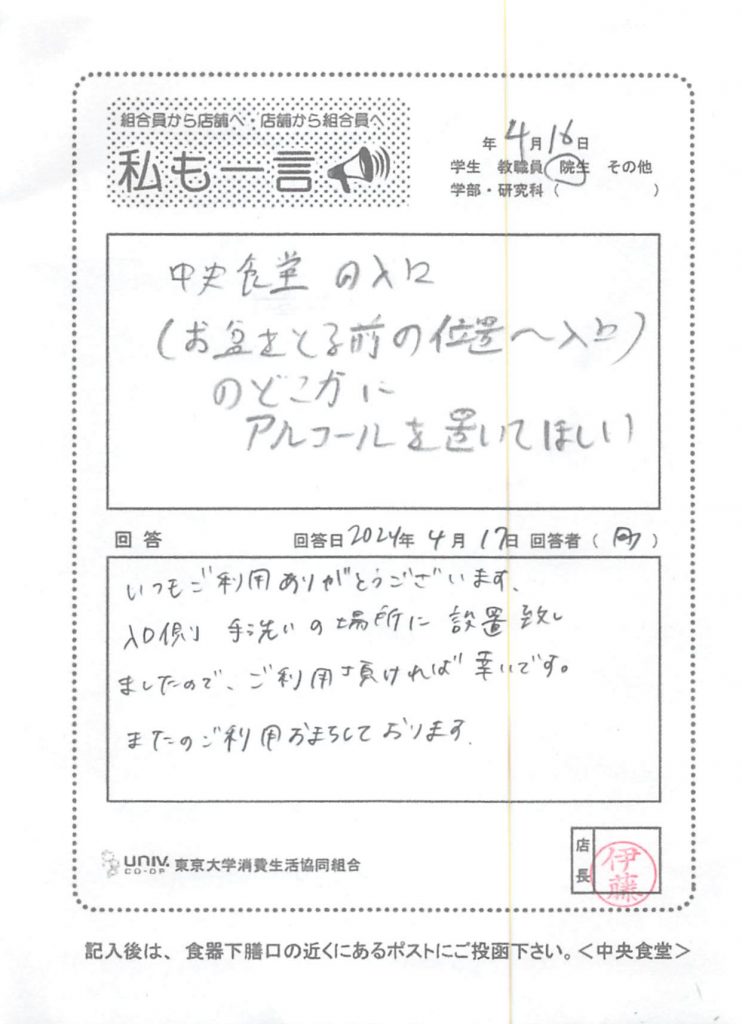 組合員から店舗へ 店舗から組合員へ
私も一言
年 4月 16日
学生 教職員 院生 その他
学部・研究科（ ）
中央食堂の入口
(お盆をとる前の位置〜入口)
のどこかに
アルコールを置いてほしい
回答 回答日2024年 4月 17日 回答者（ ）
いつもご利用ありがとうございます。
入口側 手洗いの場所に 設置致し
ましたので、ご利用頂ければ幸いです。
またのご利用おまちしております.
店長
伊藤
UNIV. CO-OP 東京大学消費生活協同組合
記入後は、食器下膳口の近くにあるポストにご投函下さい。＜中央食堂＞